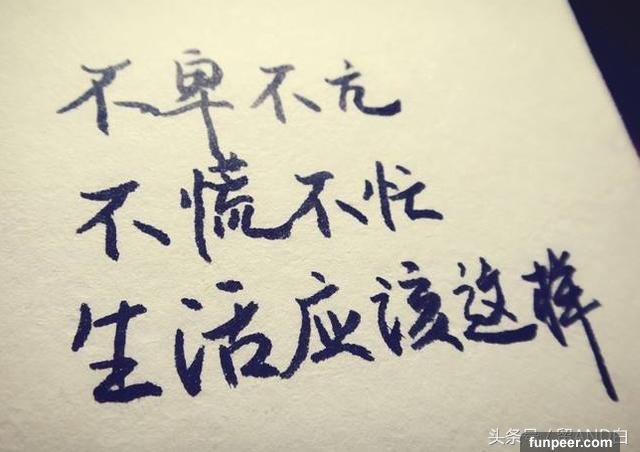 不卑不亢
不慌不忙
生活应该这样
头条号/
funpeer.com